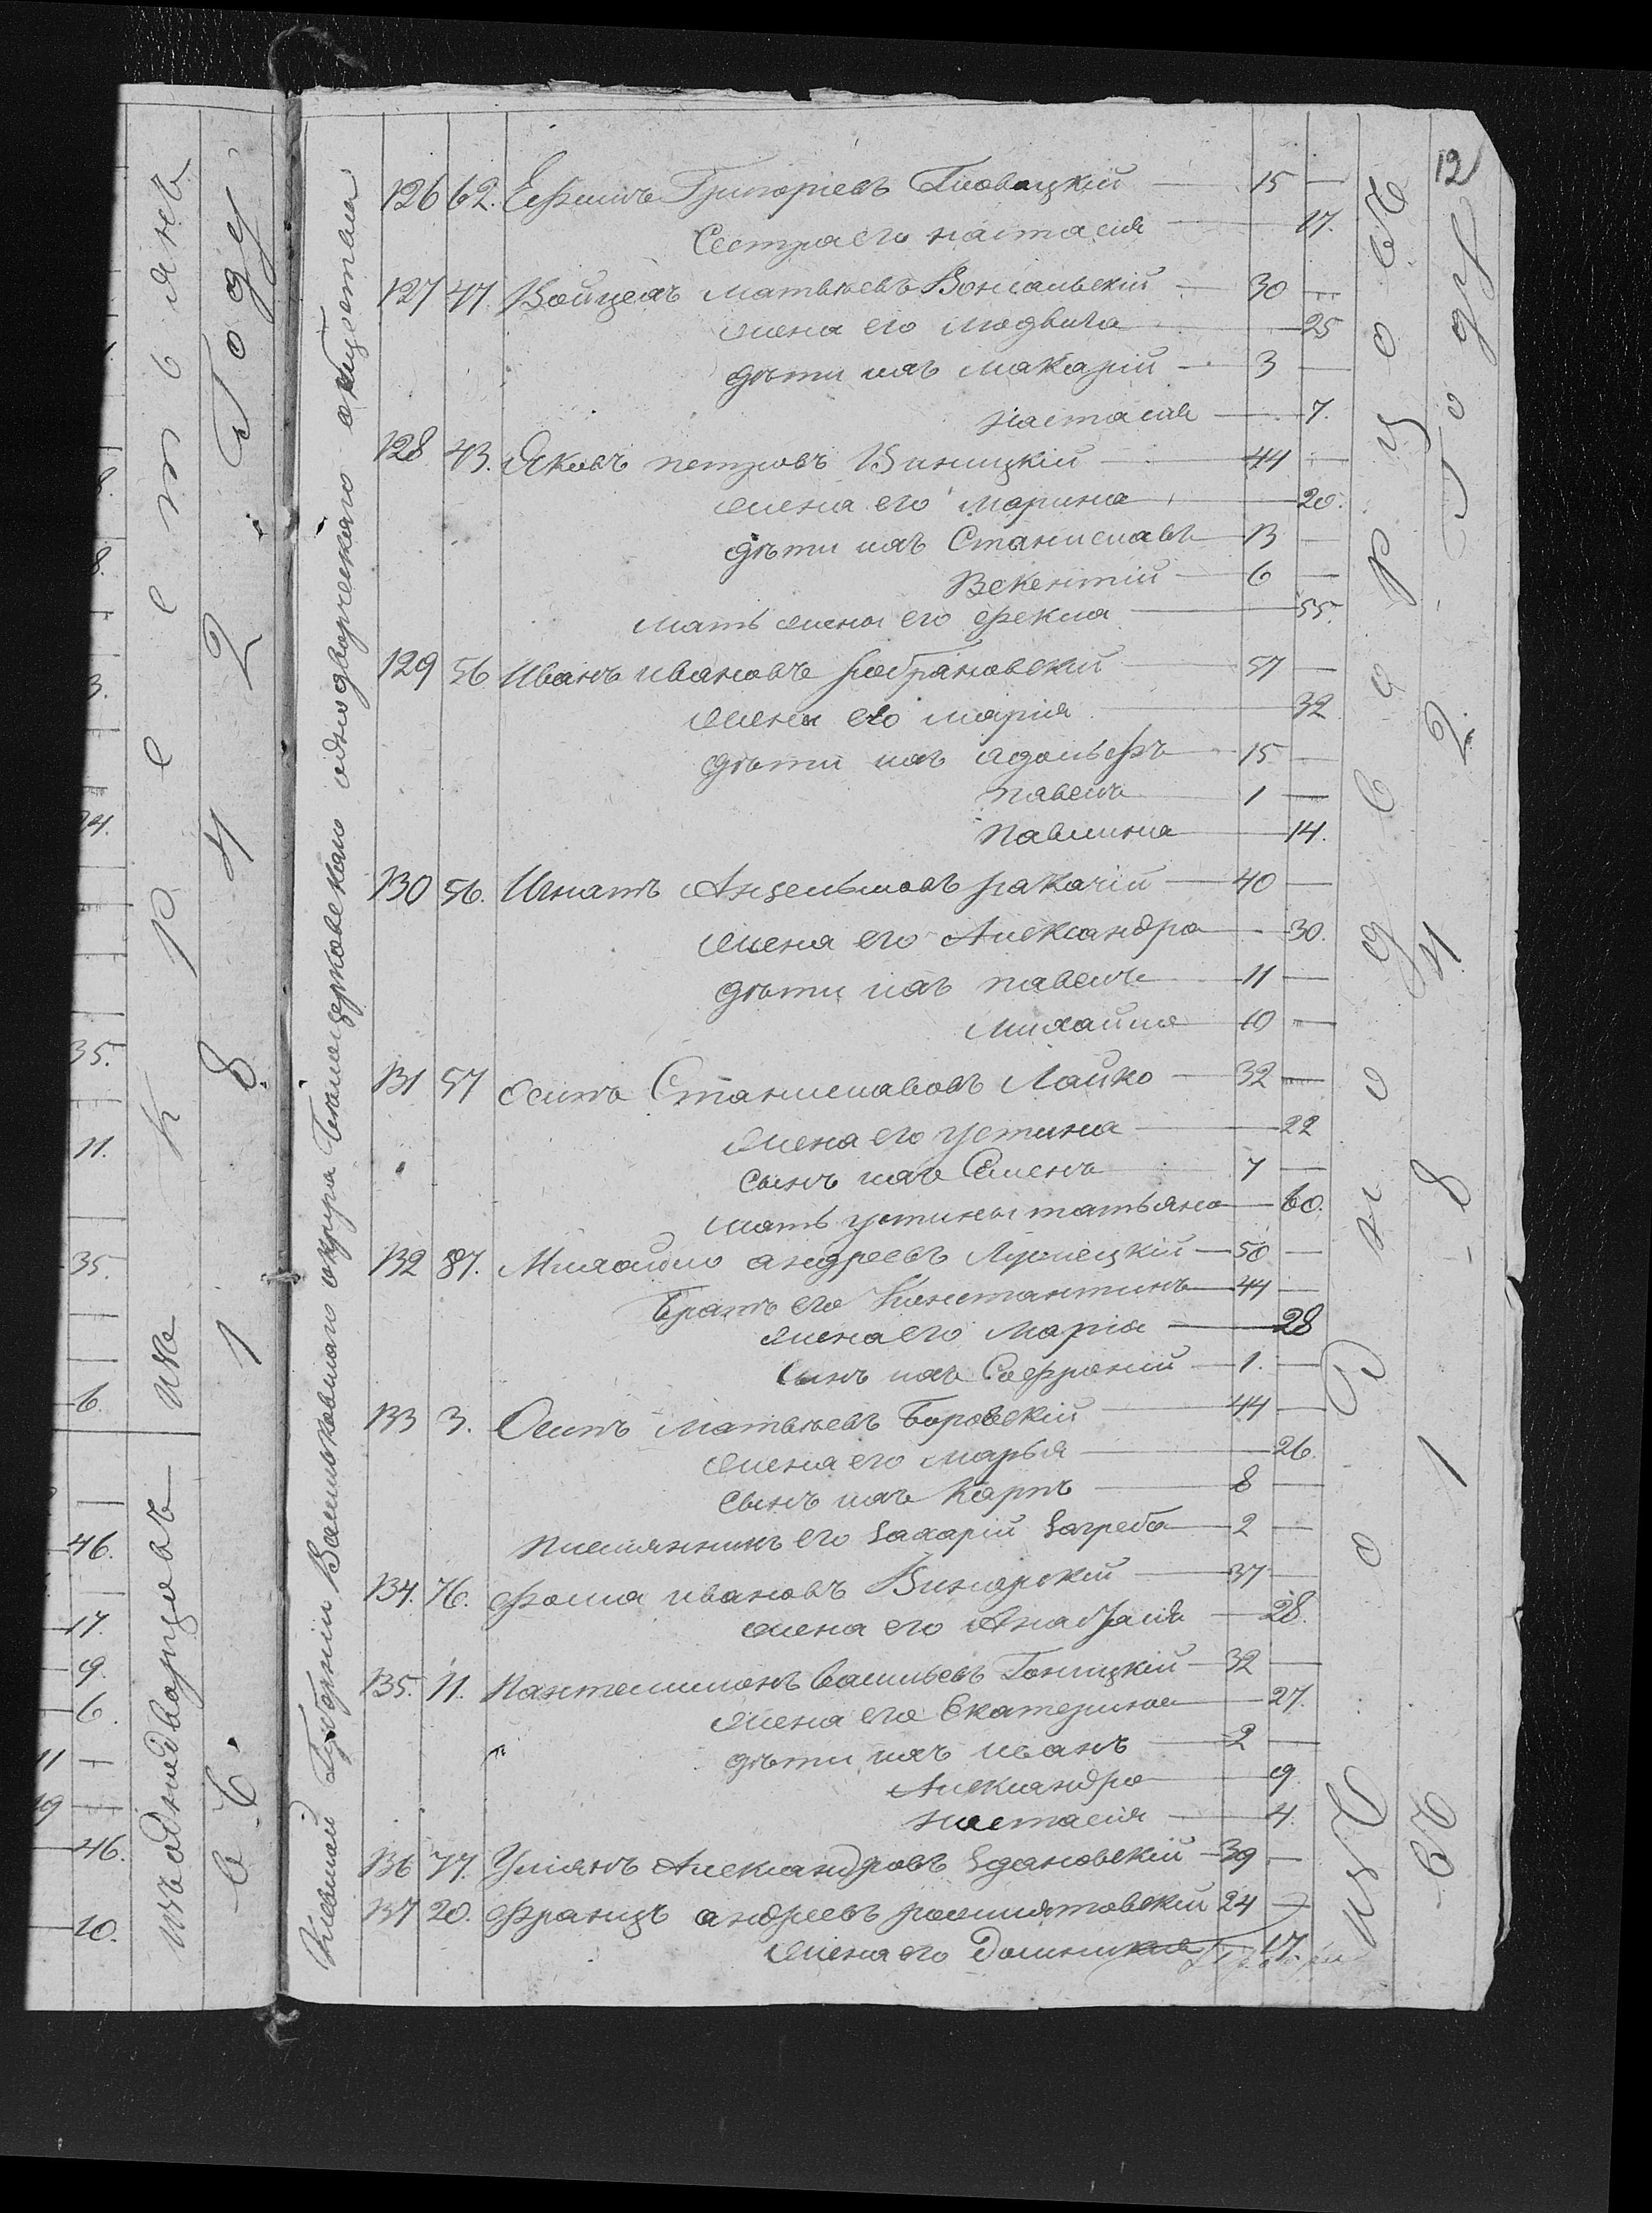 12
126 62. Ефимъ Григоріевъ Гловацкій — 15 —
Сестра его настасия — 17.
127 47. Войцехъ матвѣевъ Вонсальскій — 30 —
жена его людвига — 25
дѣти ихъ макарій — 3 —
настасия — 7.
128 43. Яковъ петровъ Виницкій — 44 —
жена его марина — 20.
дѣти ихъ Станиславъ — 13 —
Векентій — 6 —
мать жены его фекла — 55.
129 56 Иванъ ивановъ — 57 —
жена его марія — 32
дѣти ихъ адольфъ — 15 —
павелъ — 1 —
павлина — 14.
130 56. Игнатъ Анцельмовъ ракочій — 40 —
жена его Александра — 30.
дѣти ихъ павелъ — 11 —
михайло 10 —
131 57 осипъ Станиславовъ Лайко — 32 —
жена его устина — 22
Сынъ ихъ Семенъ 7 —
мать устины татьяна — 60.
132 87. Михайло андреевъ — 50 —
Братъ его Константинъ — 44 —
жена его марія — 28
Сынъ ихъ Софроній — 1. —
133 3. Осипъ матвѣевъ Боровскій — 44 —
жена его марья — 26.
Сынъ ихъ Карпъ — 8 —
племянникъ его Захарій Загреба — 2 —
134. 76. фома ивановъ Винярскій — 37 —
жена его — 28.
135. 11. Пантелимонъ васильевъ Гоницкій — 32 —
жена его Екатерина — 27.
дѣти ихъ иванъ — 2 —
Александра — 9
настасія — 4.
136 77. Улянъ Александровъ Здановскій — 39 —
137 20. францъ андреевъ 24 —
жена его — 17.
Кіевской Губерніи Васильковскаго округа Бѣлоцерковскаго однодворческаго общества
изъ Однодворцовъ
въ 1 8 4 2 Году
изъ однодворцевъ
или крестьянъ
въ 1 8 4 2 Году